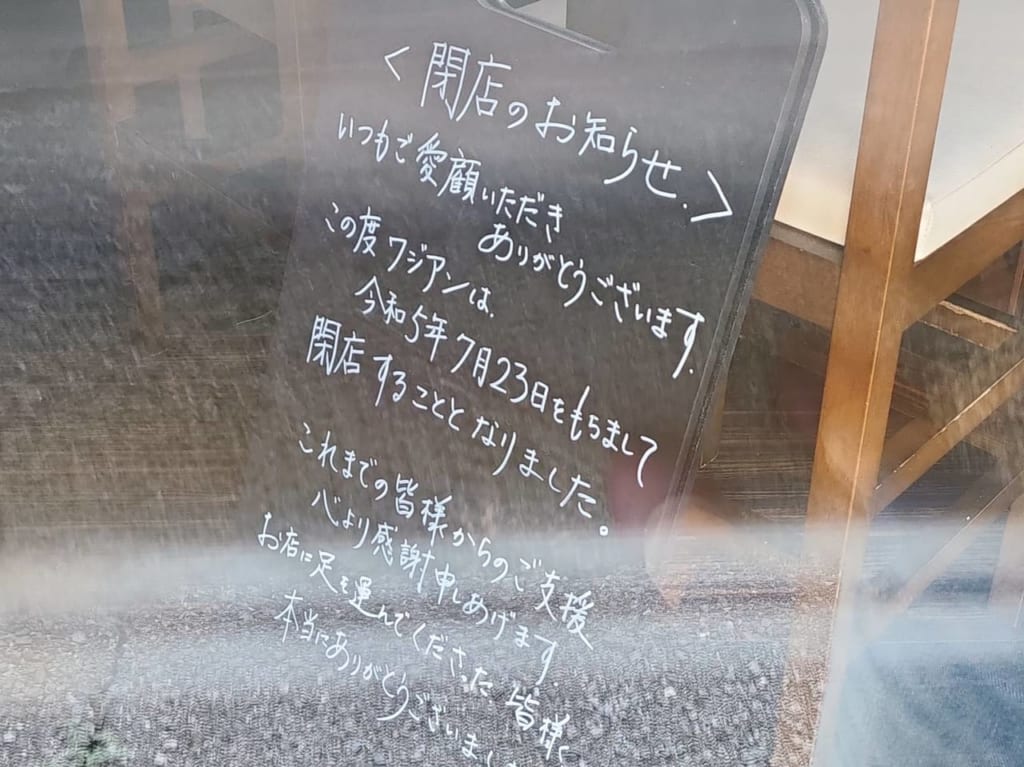 ＜閉店のお知らせ.＞
いつもご愛顧いただき
ありがとうございます.
この度ワジアンは.
今和5年7月23日をもちまして
閉店することとなりました。
これまでの皆様からのご支援
心より感謝申しあげます.
お店に足を運んでくださった皆様
本当にありがとうございまし